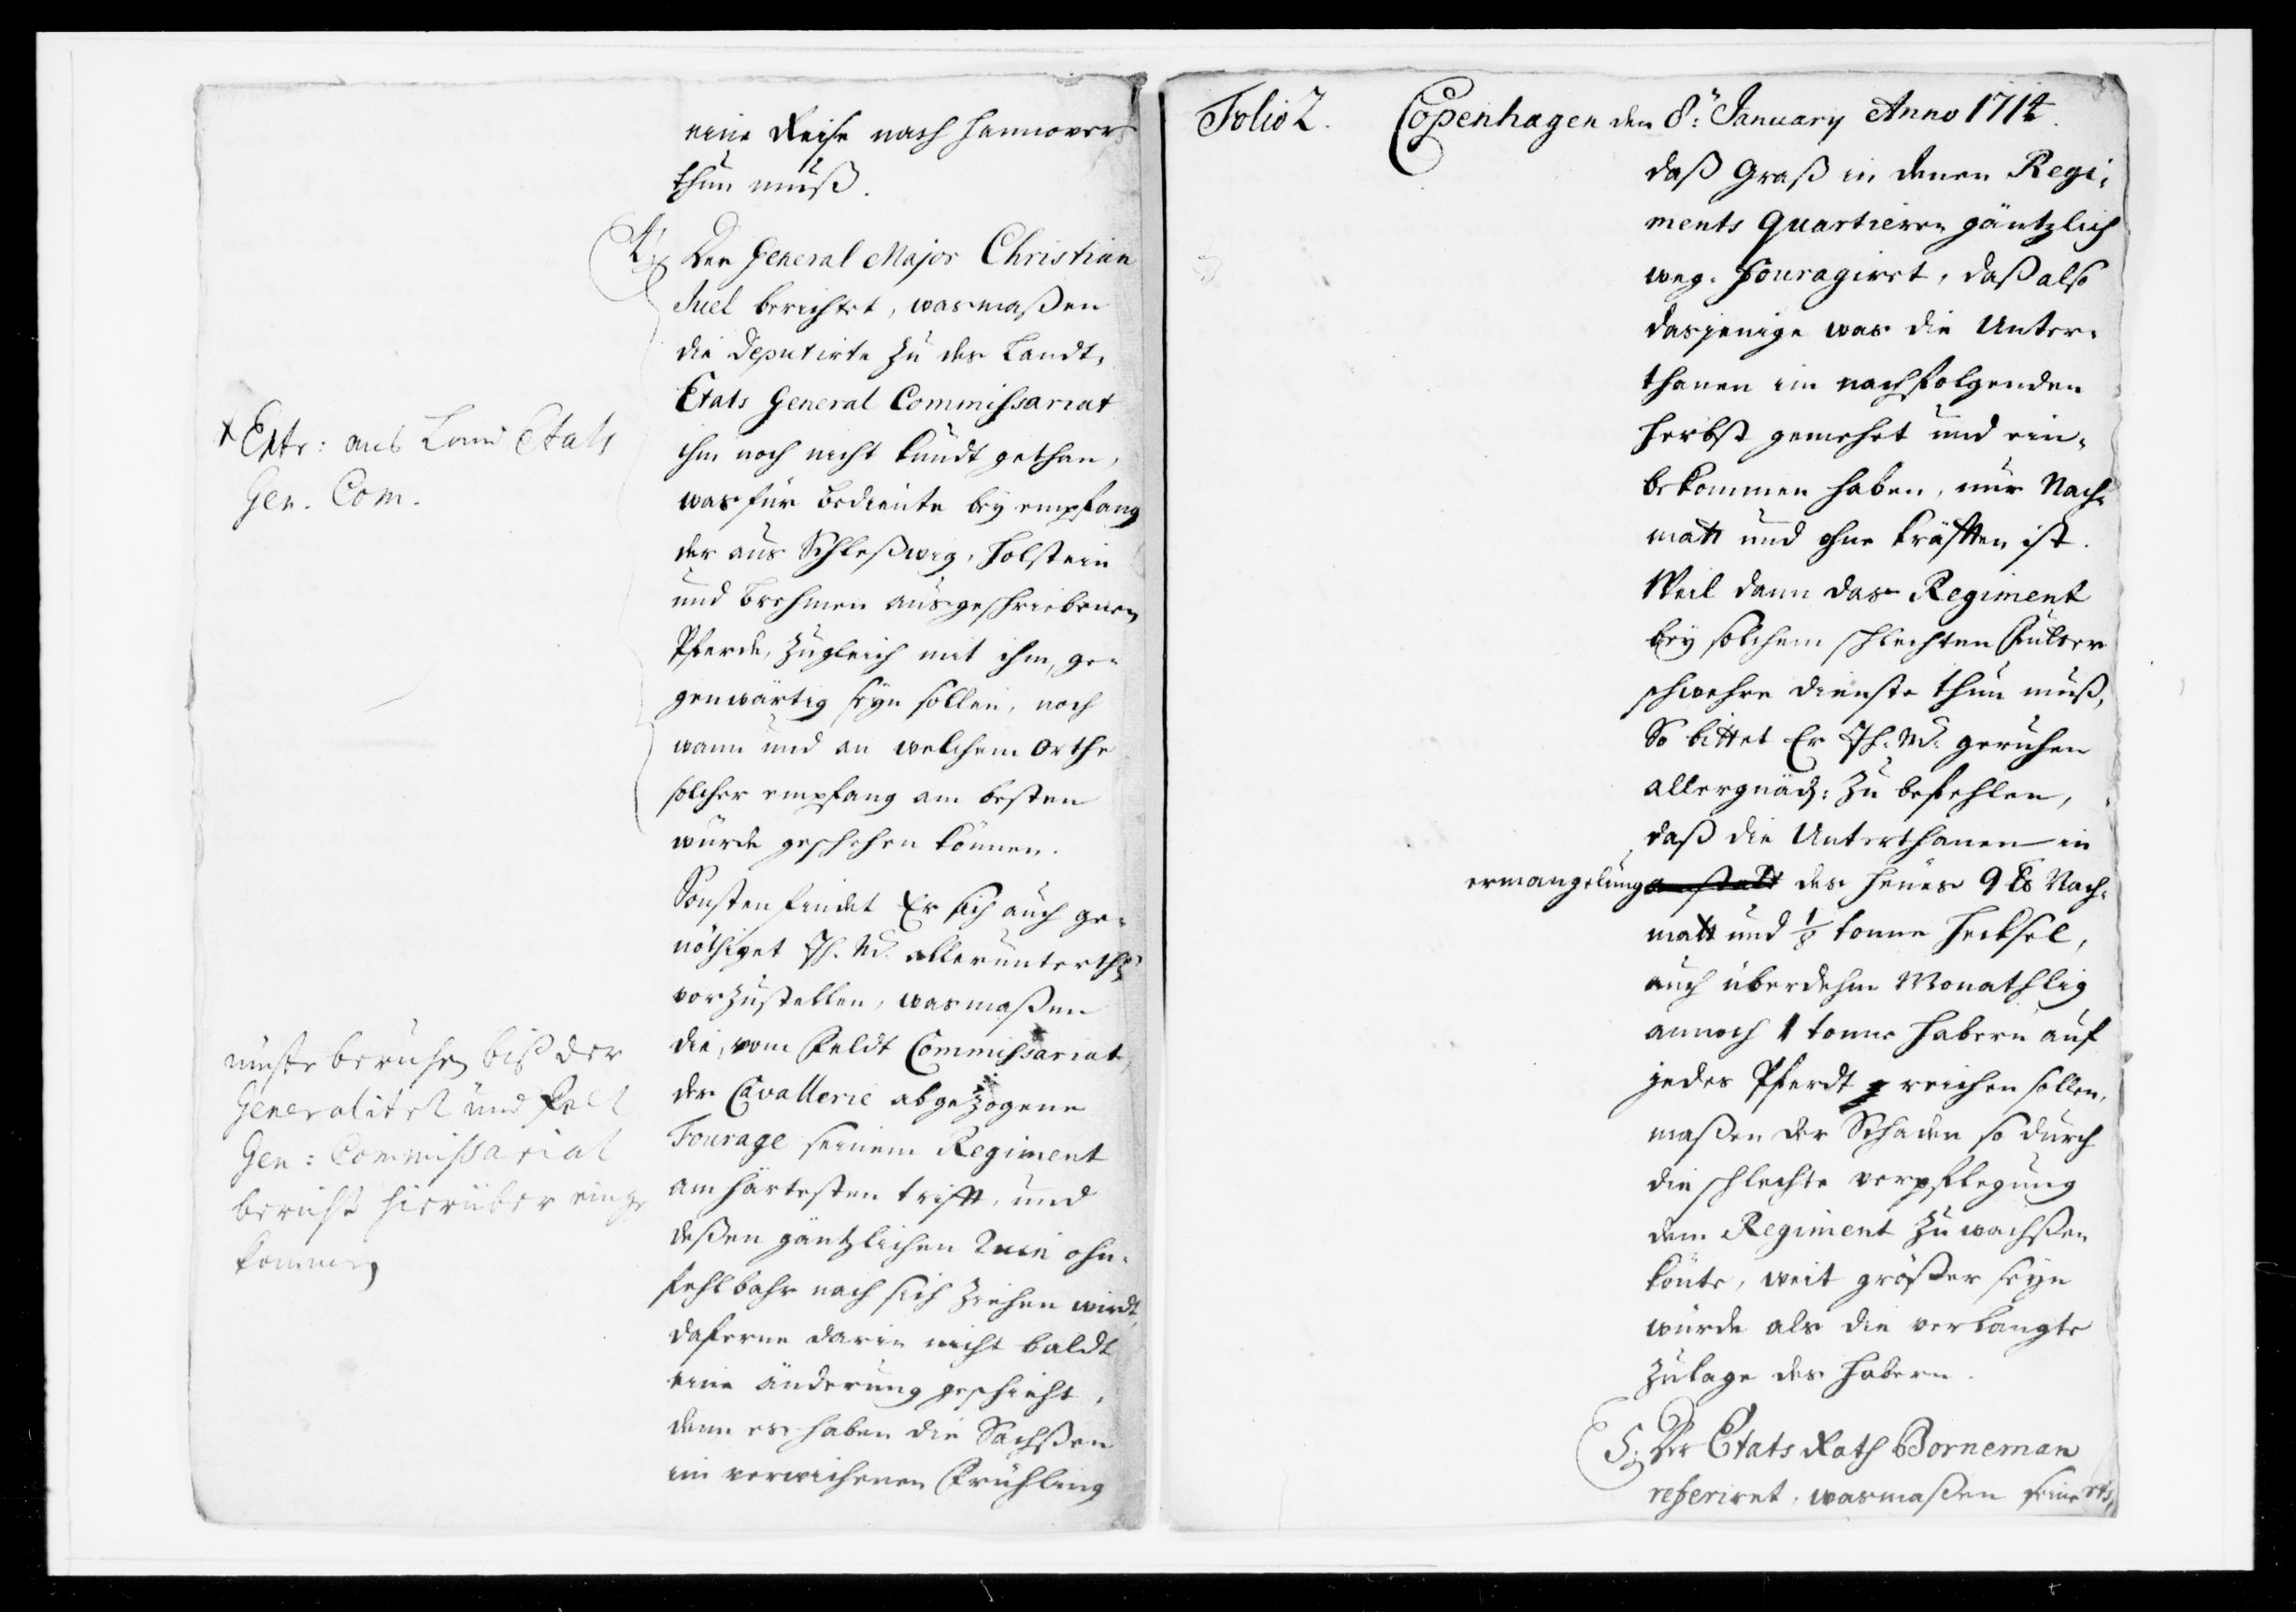 eine Reise nach Hannover
thun muß.
4. Der General Major Christian
Juel berichtet, wasmaßen
die Deputirte zu des Landt-
Etats General Commissariat
ihm noch nicht kundt gethan,
was für Bediente bey empfang
der aus Schleßwig, Holstein
und Brehmen ausgeschriebenen
Pferde, zugleich mit ihm, ge-
genwärtig seyn sollen, noch
wann und an welchem Orthe
solcher empfang am besten
würde geschehen können.
Sonsten findet Er sich auch ge-
nöthiget Ih. M. allerunterth.
vorzustellen, wasmaßen
die, vom Feldt Commissariat,
der Cavallerie abgezogene
Fourage seinem Regiment
am härtesten trifft, und
deßen gäntzlichen Ruin ohn-
fehlbahr nach sich ziehen wirdt,
daferne darin nicht baldt
eine änderung geschieht,
denn es haben die Sachßen
im verwichenen Frühling
+ Extr: aus Land Etats
Gen. Com.
müste beruhen biß der
Generalitet und Felt
Gen: Commissariat
bericht hierüber einge
kommen
Folio 2. Copenhagen den 8: January Anno 1714.
daß Graß in denen Regi-
ments Quartieren gäntzlich
weg-fouragiret, daß also
dasjenige was die Unter-
thanen im nachfolgenden
Herbst gemehet und ein-
bekommen haben, nur Nach-
matt und ohne kräfften ist.
Weil dann das Regiment
bey solchem schlechten Futter
schwehre dienste thun muß,
So bittet Er Ih. M. geruhen
allergnäd: zu befehlen,
daß die Unterthanen in
ermangelung anstatt des Heues 9 ℔ Nach-
matt und 1/8 tonne Hecksel,
auch überdehm Monathlig
annoch 1 tonne Habern auf
jedes Pferdt reichen sollen,
maßen der Schaden so durch
die schlechte verpflegung
dem Regiment zu wachßen
könte, weit größer seyn
würde als die verlangte
zulage des Habern.
5. Der Etats Rath Borneman
referiret, wasmaßen seine